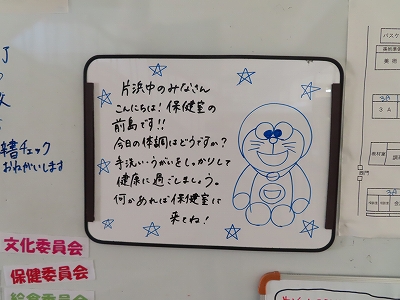 片浜中のみなさん
こんにちは!保健室の
前島です!!
今日の体調はどうですか?
手洗い・うがいをしっかりして
健康に過ごしましょう。
何かあれば保健室に
来てね!
チェック
おねがいします
文化委員会
保健委員会
給食委員会
バスケ
美術
3A